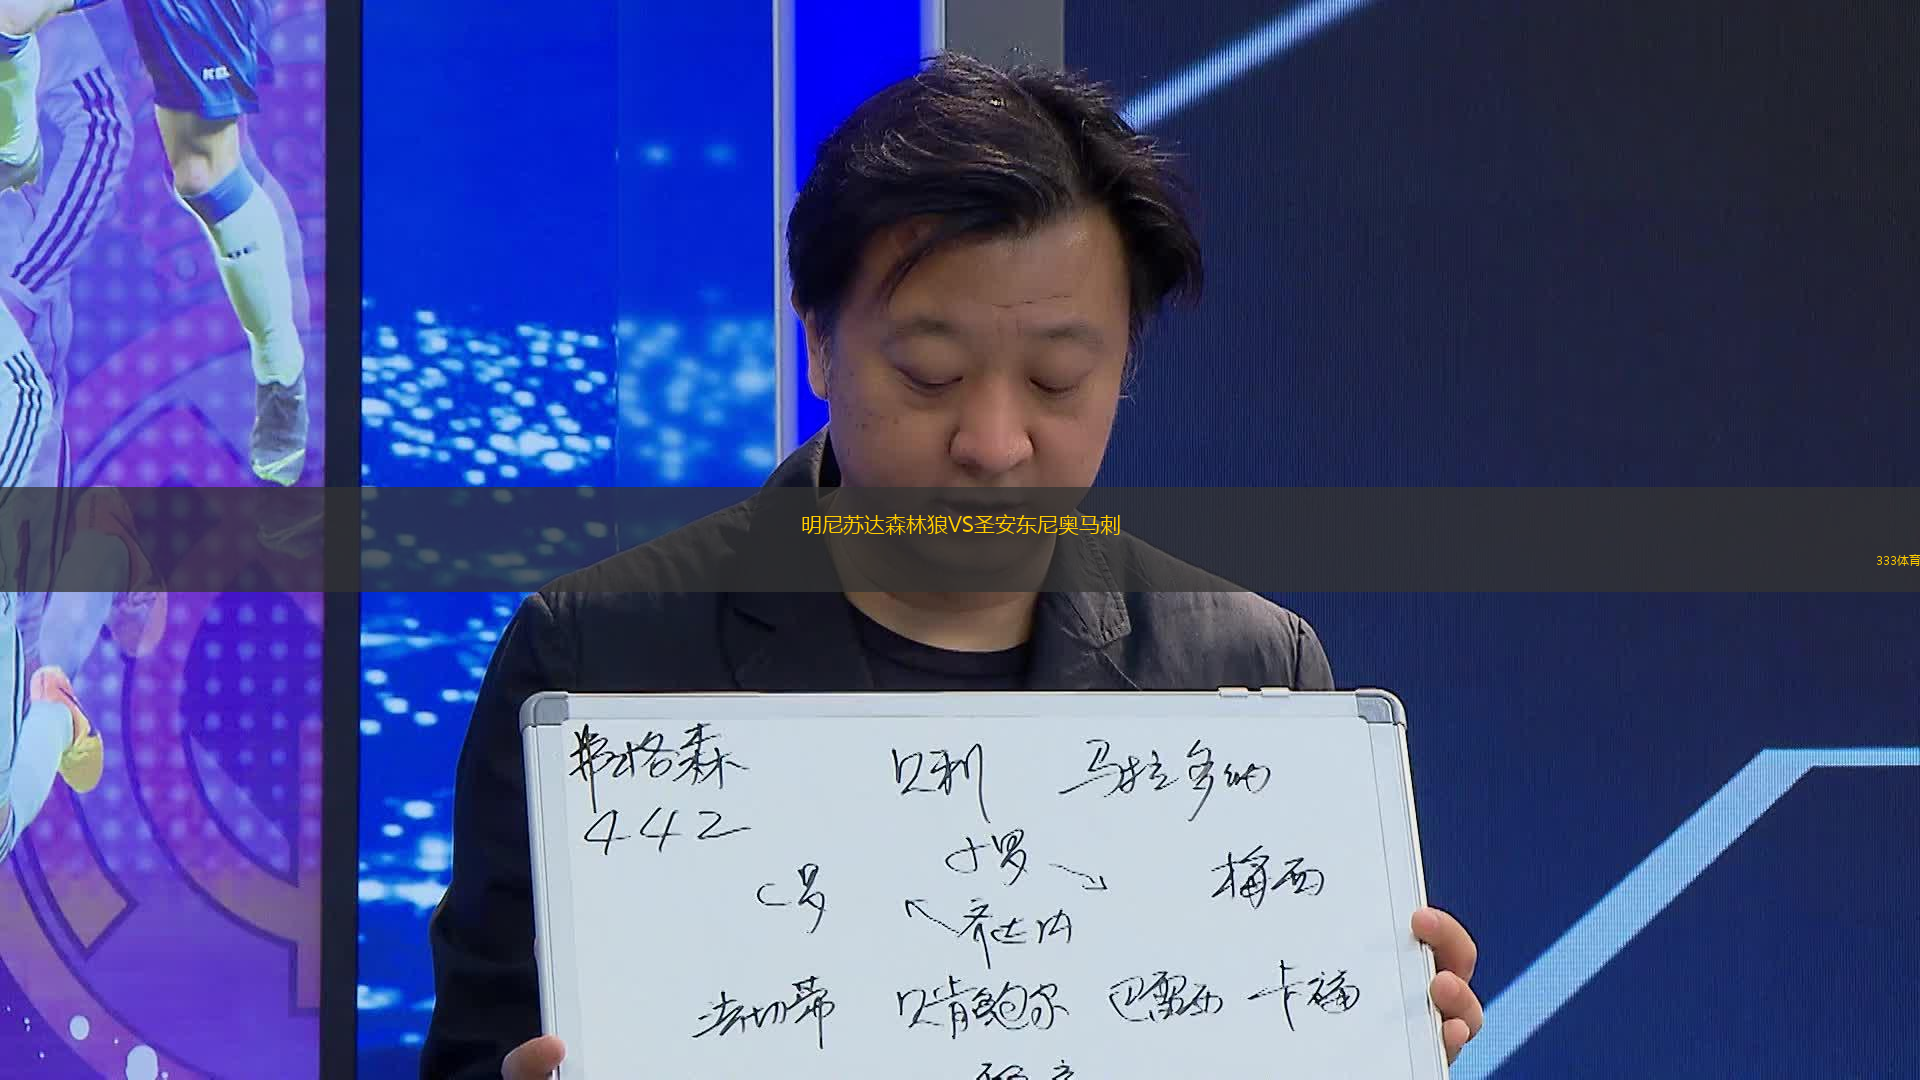 KEL
明尼苏达森林狼VS圣安东尼奥马刺
333体育
弗格森 贝利 马拉多纳
442
小罗
C罗 梅西
齐达内
法切蒂 贝肯鲍尔 巴雷西 卡福